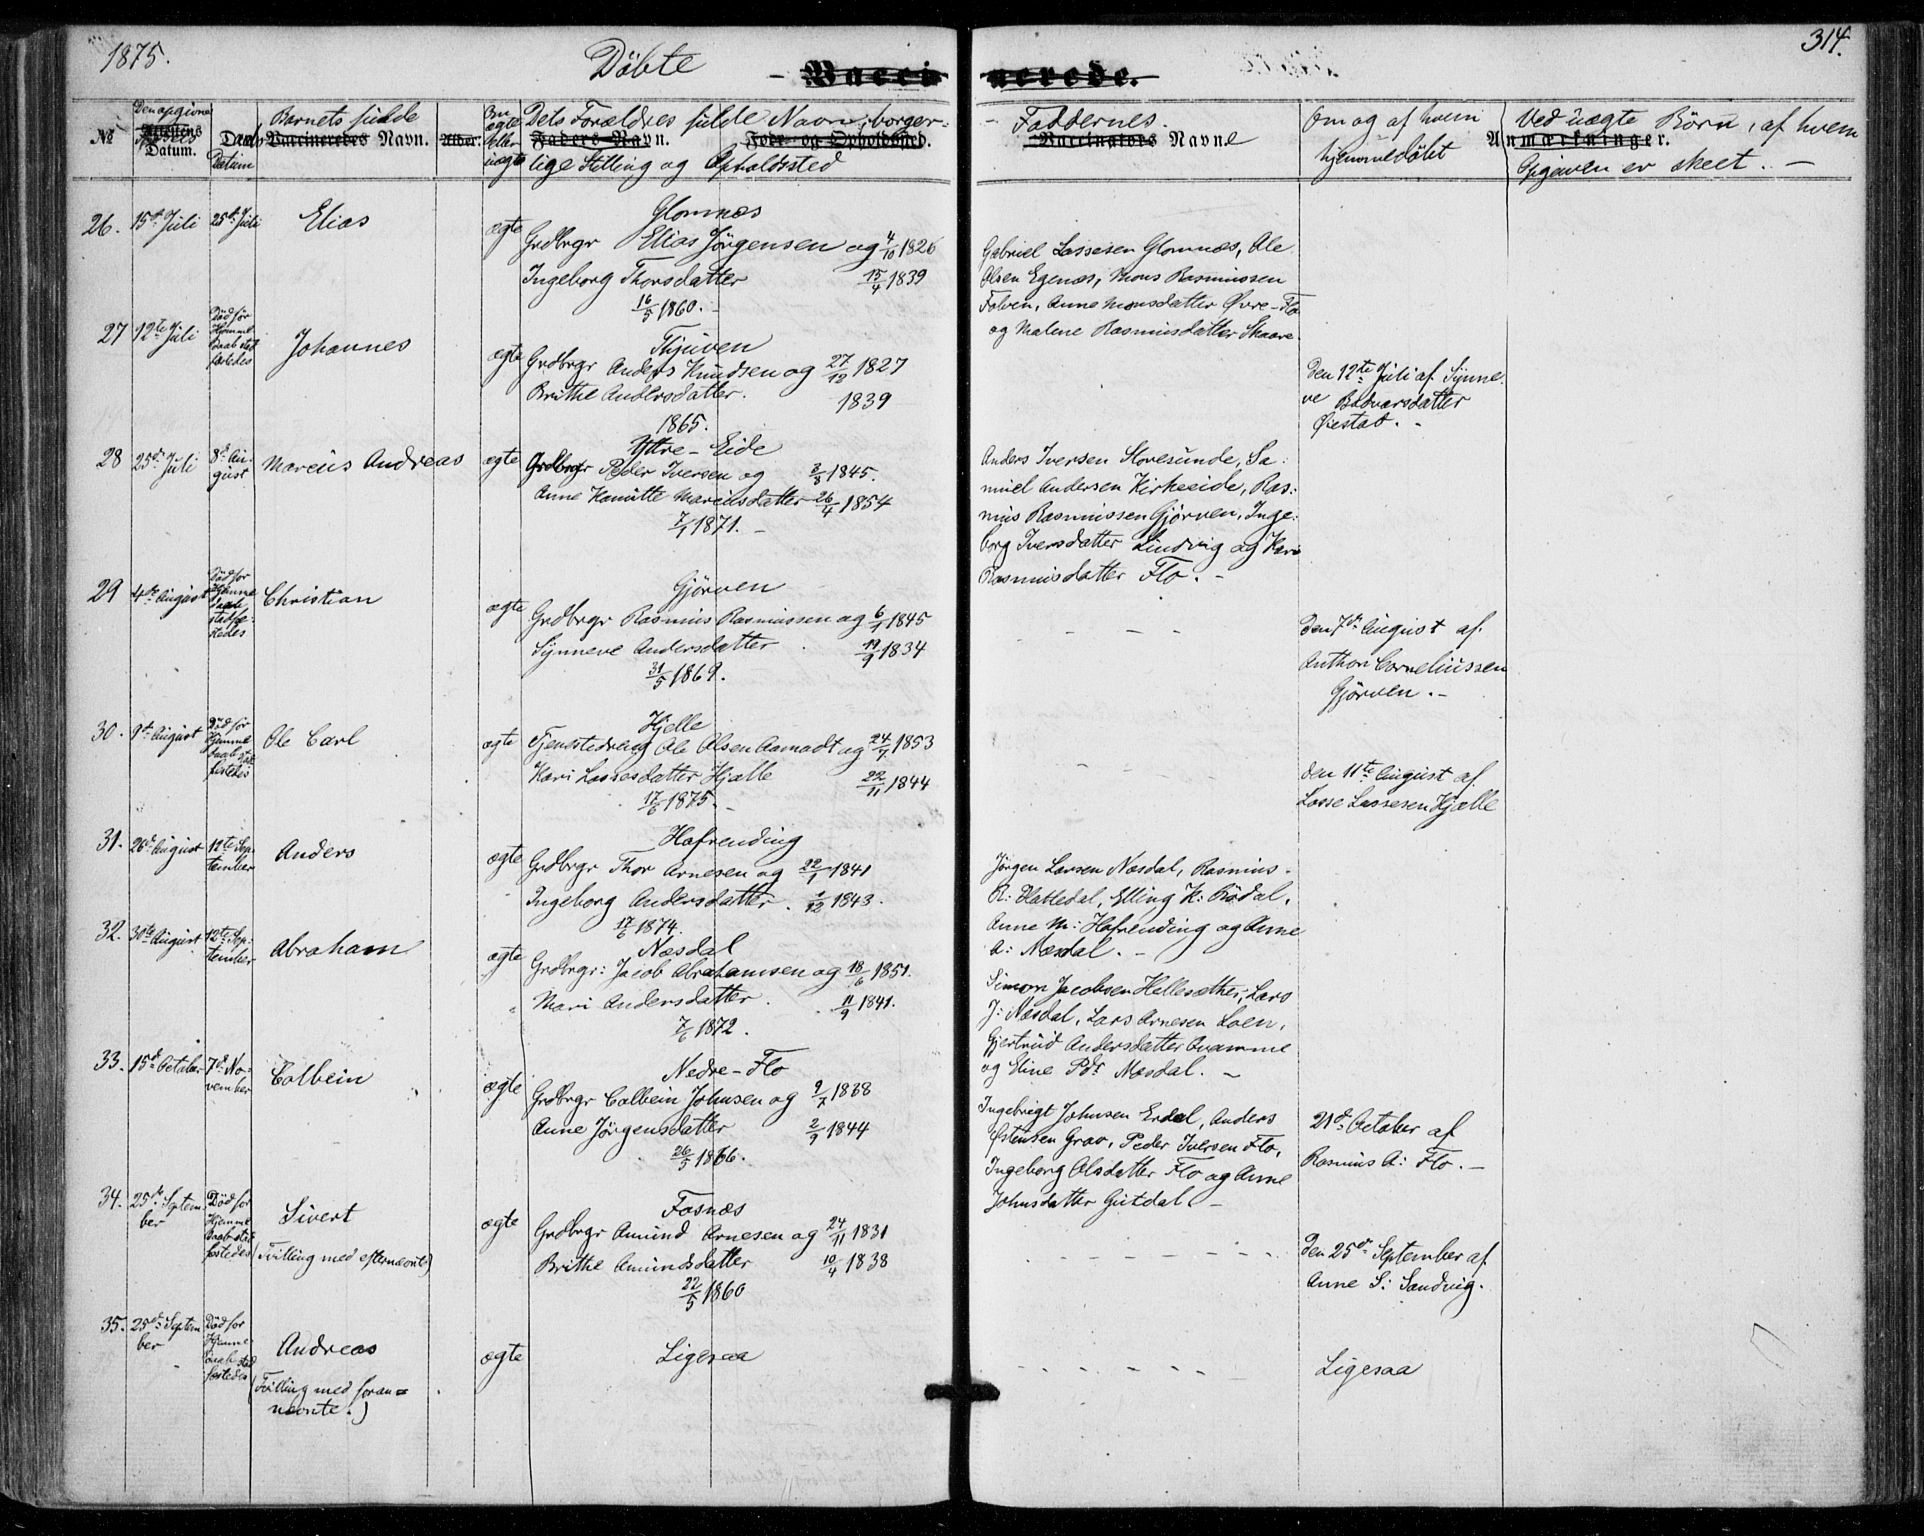 1875.
Döbte
314.
Vaccinerede.
No
Den opgivne
Attestens
Fødsels
Datum.
Daab
Datum
Barnets fulde
Vaccineredes Navn.
Alder.
Om
ægte
eller
uægte
Dets Forældres fulde Navn, borger-
Faders Navn. Føde- og Opholdssted.
lige Stilling og Opholdssted
Faddernes
Vaccinators Navne
Om og af hvem
hjemmedöbt
Ved uægte Börn, af hvem
Anmærkninger.
Opgaven er skeet. -
26. 15de Juli 25de Juli Elias ægte
Glomnæs
Grdbrgr Elias Jörgensen og 4/10 1826
Ingeborg Thorsdatter 15/4 1839
16/5 1860. -
Gabriel Lassesen Glomnæs, Ole
Olsen Egenæs, Mons Rasmussen
Folven, Anne Monsdatter Øvre-Flo
og Malene Rasmusdatter Skaare.
27 12te Juli Död för
Hjemme
Daab stad
fæstedes
Johannes ægte
Thjuven
Grdbrgr Anders Knudsen og 27/12 1827
Brithe Andersdatter. 1839
1865.
Den 12te Juli af Synne-
ve Bodvarsdatter
Øiestad. -
28 25de Juli 8de Au-
gust
Marcus Andreas ægte
Yttre-Eide
Grdbrgr Peder Iversen og 3/8 1845.
Anne Kamitte Marcusdatter 26/4 1854
7/1 1871. -
Anders Iversen Slovesunde, Sa-
muel Andersen Kirkeeide, Ras:
mus Rasmussen Gjörven, Inge:
borg Iversdatter Lindvig og Kari
Rasmusdatter Flo. -
29 4de August Död for
Hjemme
daab
stadfæ-
stedes
Christian ægte
Gjörven
Grdbrgr Rasmus Rasmussen og 6/1 1845
Synneve Andersdatter 19/9 1834
31/5 1869.
- - - -
Den 7de August af
Anthon Corneliussen
Gjörven. -
30. 9de August Död for
Hjemme
daab stad
fæstedes
Ole Carl ægte
Hjelle
Tjenestedreng Ole Olsen Aamodt og 24/7 1853
Kari Lassesdatter Hjelle 22/11 1844
17/6 1875. -
- - - -
Den 11te August af
Lasse Lassesen Hjelle
31. 26de August 12te Sep-
tember
Anders ægte
Hafrending
Grdbrgr Thor Arnesen og 22/1 1841
Ingeborg Andersdatter. 1/12 1843.
17/6 1874.
Jörgen Larsen Næsdal, Rasmus
R: Hattedal, Elling K: Bödal,
Anne M: Hafrending og Anne
A: Næsdal. -
32. 30te August 12te Sep-
tember
Abraham ægte
Næsdal
Grdbrgr: Jacob Abrahamsen og 18/6 1851.
Mari Andersdatter. 11/9 1841.
7/6 1872.
Simon Jacobsen Hellesæther, Lars
J: Næsdal, Lars Arnesen Loen,
Gjertrud Andersdatter Qvamme
og Eline Pdr Næsdal. -
33. 15de October 7de No-
vember
Colbein ægte
Nedre-Flo
Grdbrgr Colbein Johnsen og 9/7 1838
Anne Jörgensdatter 2/9 1844
26/5 1866.
Ingebrigt Johnsen Erdal, Anders
Østensen Grav, Peder Iversen Flo,
Ingeborg Olsdatter Flo og Anne
Johnsdatter Gutdal. -
21de October af
Rasmus A: Flo. -
34. 25de Septem-
ber
Död for
Hjemme
daab stad
fæstedes
Sivert
(Tvilling med efternævnte) ægte
Fosnæs
Grdbrgr Amund Arnesen og 24/11 1831
Brithe Amundsdatter 10/4 1838
22/5 1860
- - - - - - -
Den 25de September af
Anne S: Sandvig.
35. 25de Septem
ber
Död for
Hjemme
daab stad
fæstedes
Andreas
(Tvilling med foran=
nævnte.) ægte
Ligesaa
- - - - - -
Ligesaa